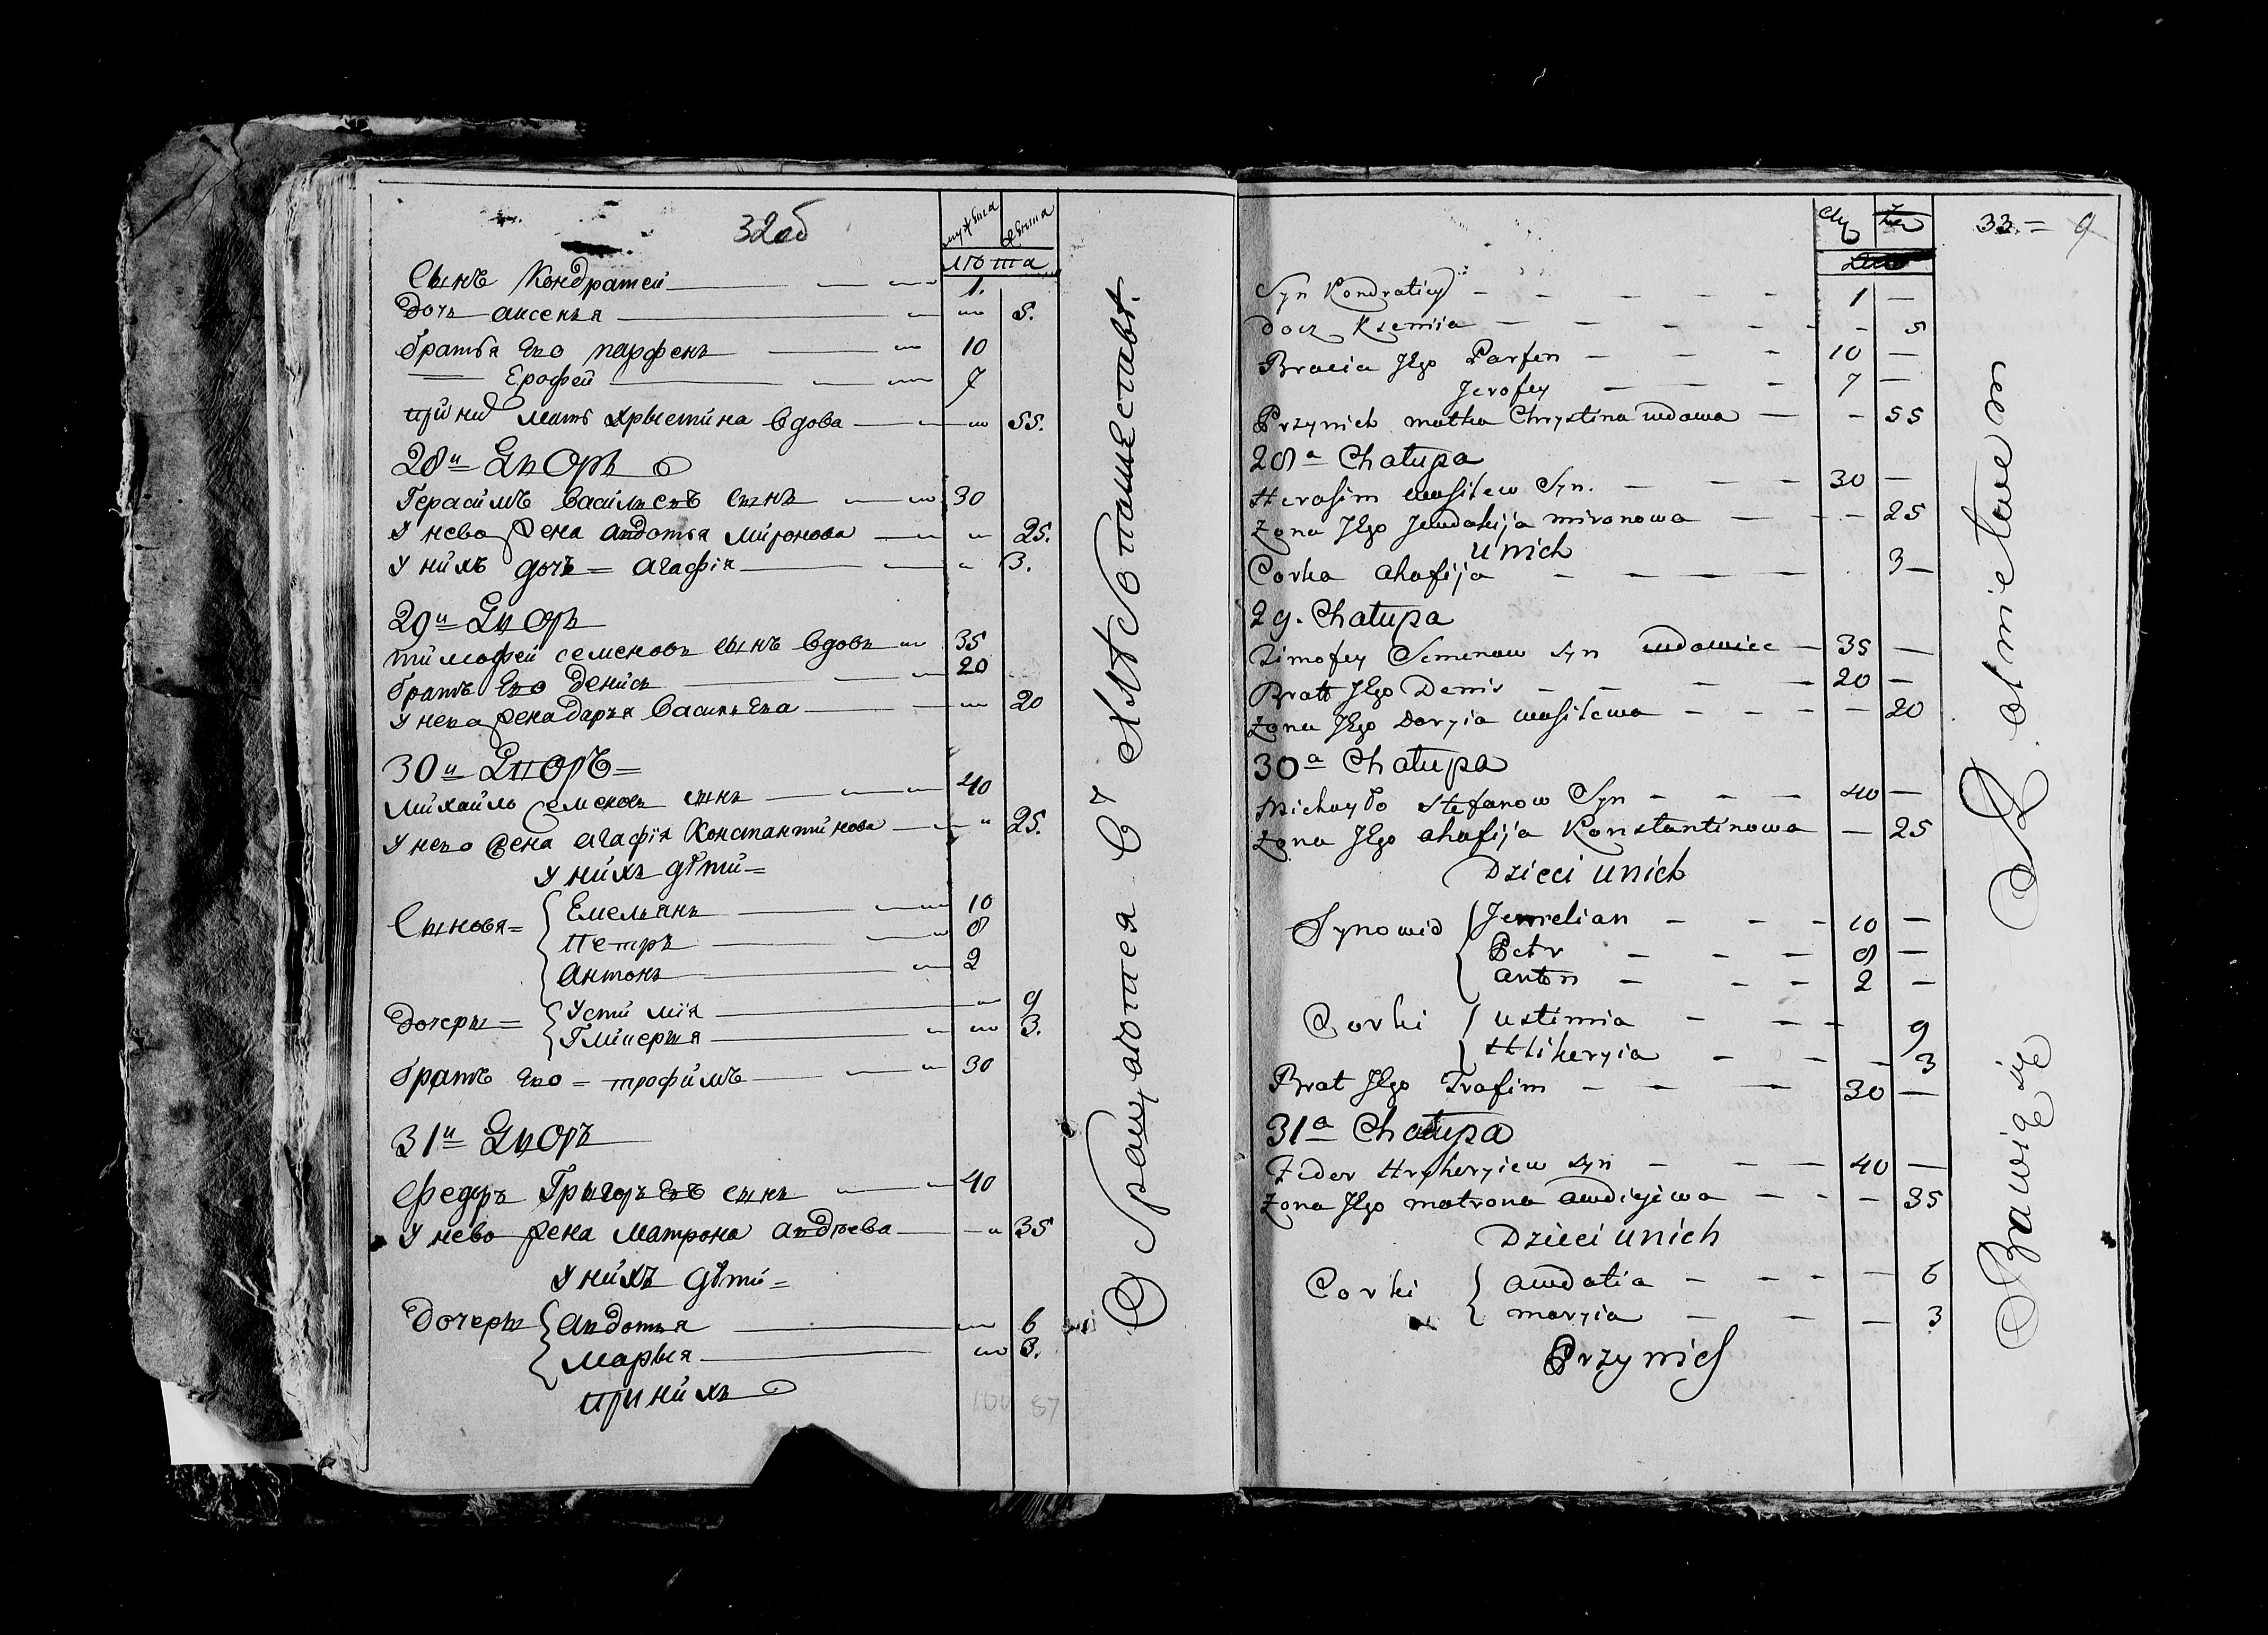 32об
мужеска женска
лѣта
Сынъ Кондратей 1.
Дочь аксенья 5.
братья Ево парфенъ 10
Ерофей 7
при них мать хрыстина вдова 55.
28й Дворъ
Герасимъ Васильевъ сынъ 30
У нево жена авдотья миронова 25.
У нихъ дочь = агафія 3.
29й Дворъ
тимофей семеновъ сынъ вдовъ 35
братъ Ево Денисъ 20
У нево жена дарья Васильева 20
30й Дворъ =
михайло Семеновъ сынъ 40
У нево жена агафія Константинова 25.
У нихъ дѣти =
Сыновя = Емельянъ 10
Петръ 8
антонъ 2
Дочеры = Устимія 9
Гликерья 3.
братъ Ево = трофимъ 30
31й Дворъ
Федоръ Григорьевъ сынъ 40
У нево жена матрона андрѣева 35
У нихъ дѣти =
Дочеры авдотья 6
марья 3.
при нихъ
100 87
33. = 9
Syn Kondratiey 1 —
Docz Ksemia — 5
Bracia Jego Parfen 10 —
Jerofey 7 —
Przynich matka Chrystina wdowa — 55
28a Chatupa
Herasim wasilew Syn. 30 —
Zona Jego Jewdokija mironowa — 25
unich
Corka ahafija 3 —
29. Chatupa
Timofey Semenow syn wdowiec 35 —
Bratt Jego Denis 20 —
Zona Jego Daryia wasilewa — 20
30a Chatupa
Michayło Stefanow Syn 40 —
Zona Jego ahafija Konstantinowa — 25
Dzieci unich
Synowie Jemelian 10 —
Petr 8 —
anton 2 —
Corki ustimia 9
Hlikeryia — 3
Brat Jego Trafim 30 —
31a Chatupa
Fedor Hryhoryiew syn 40 —
Zona Jego matrona andiejewa — 35
Dzieci unich
Corki awdotia — 6
maryia — 3
Przynich